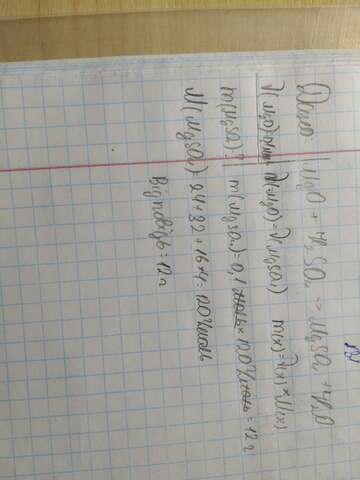 №
Дано: | MgO + H₂SO₄ → MgSO₄ + H₂O
ν(MgO)= ν(MgO)=ν(MgSO₄) m(x)=ν(x)×M(x)
m(MgSO₄)? | m(MgSO₄)=0,1 моль×120г/моль=12г
M(MgSO₄) 24+32+16×4=120г/моль
Відповідь=12г